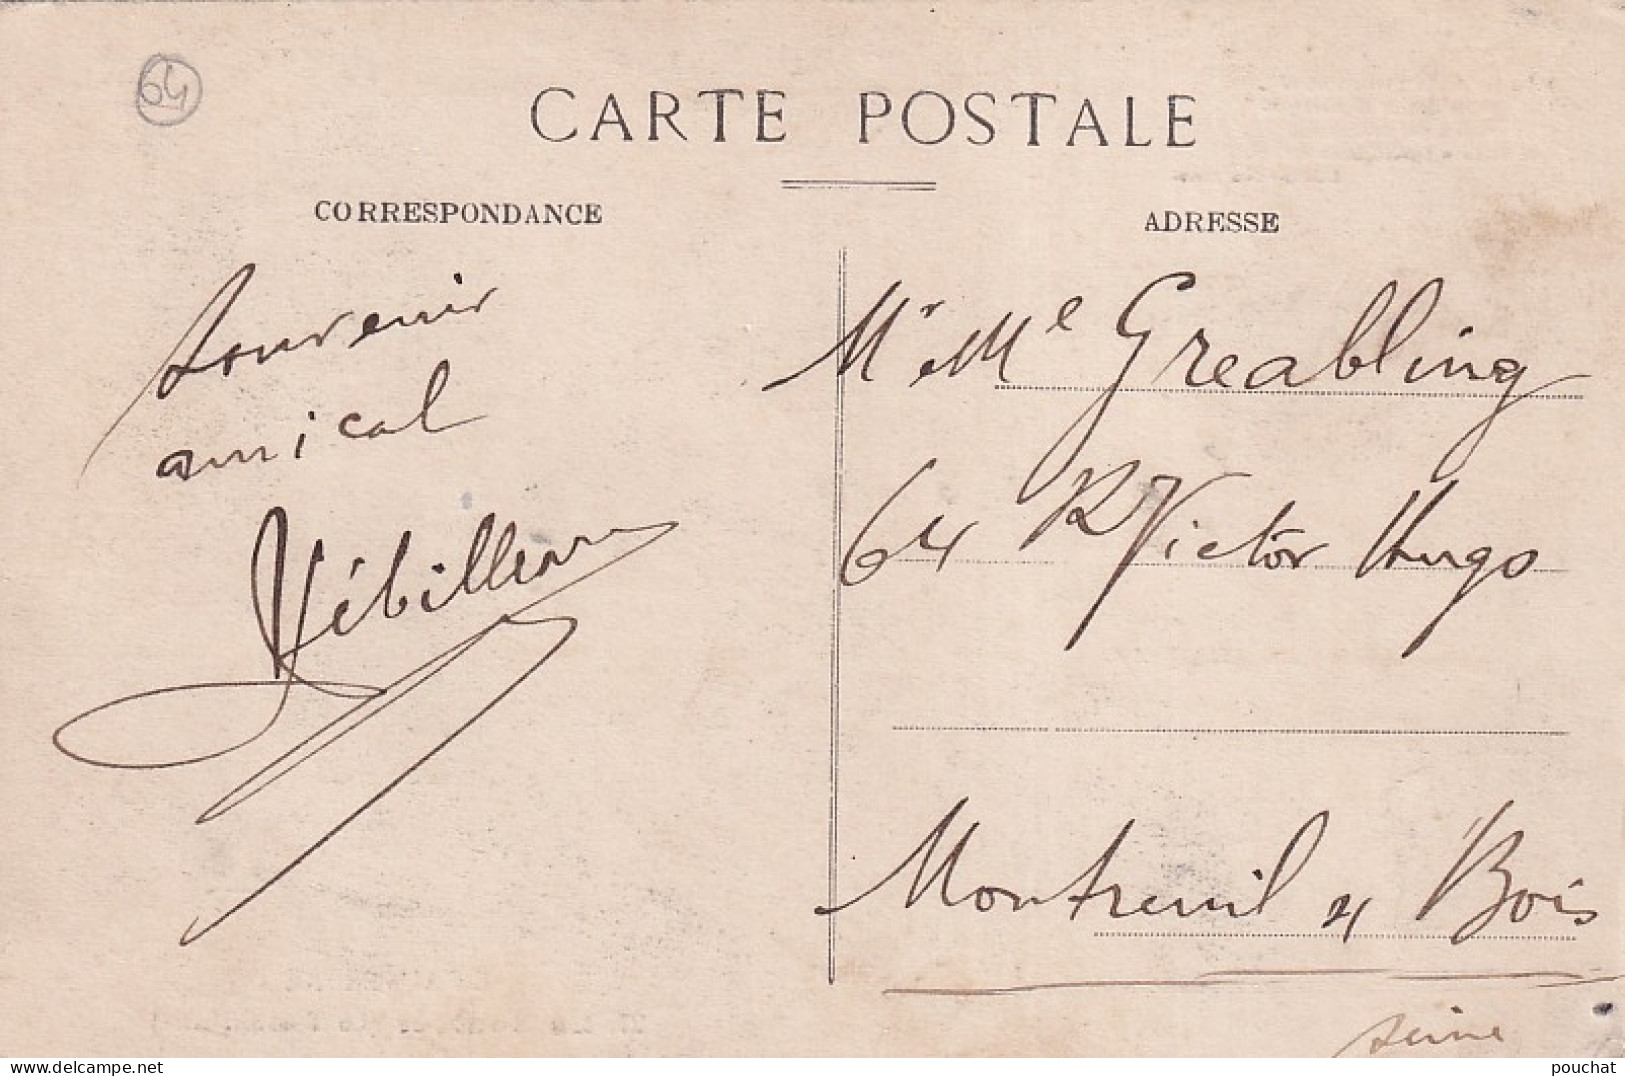 64
CARTE POSTALE
CORRESPONDANCE
ADRESSE
Souvenir
amical
Mr & Me Greabling
64 R Victor Hugo
Montreuil s/ Bois
Seine
delcampe.net
pouchat